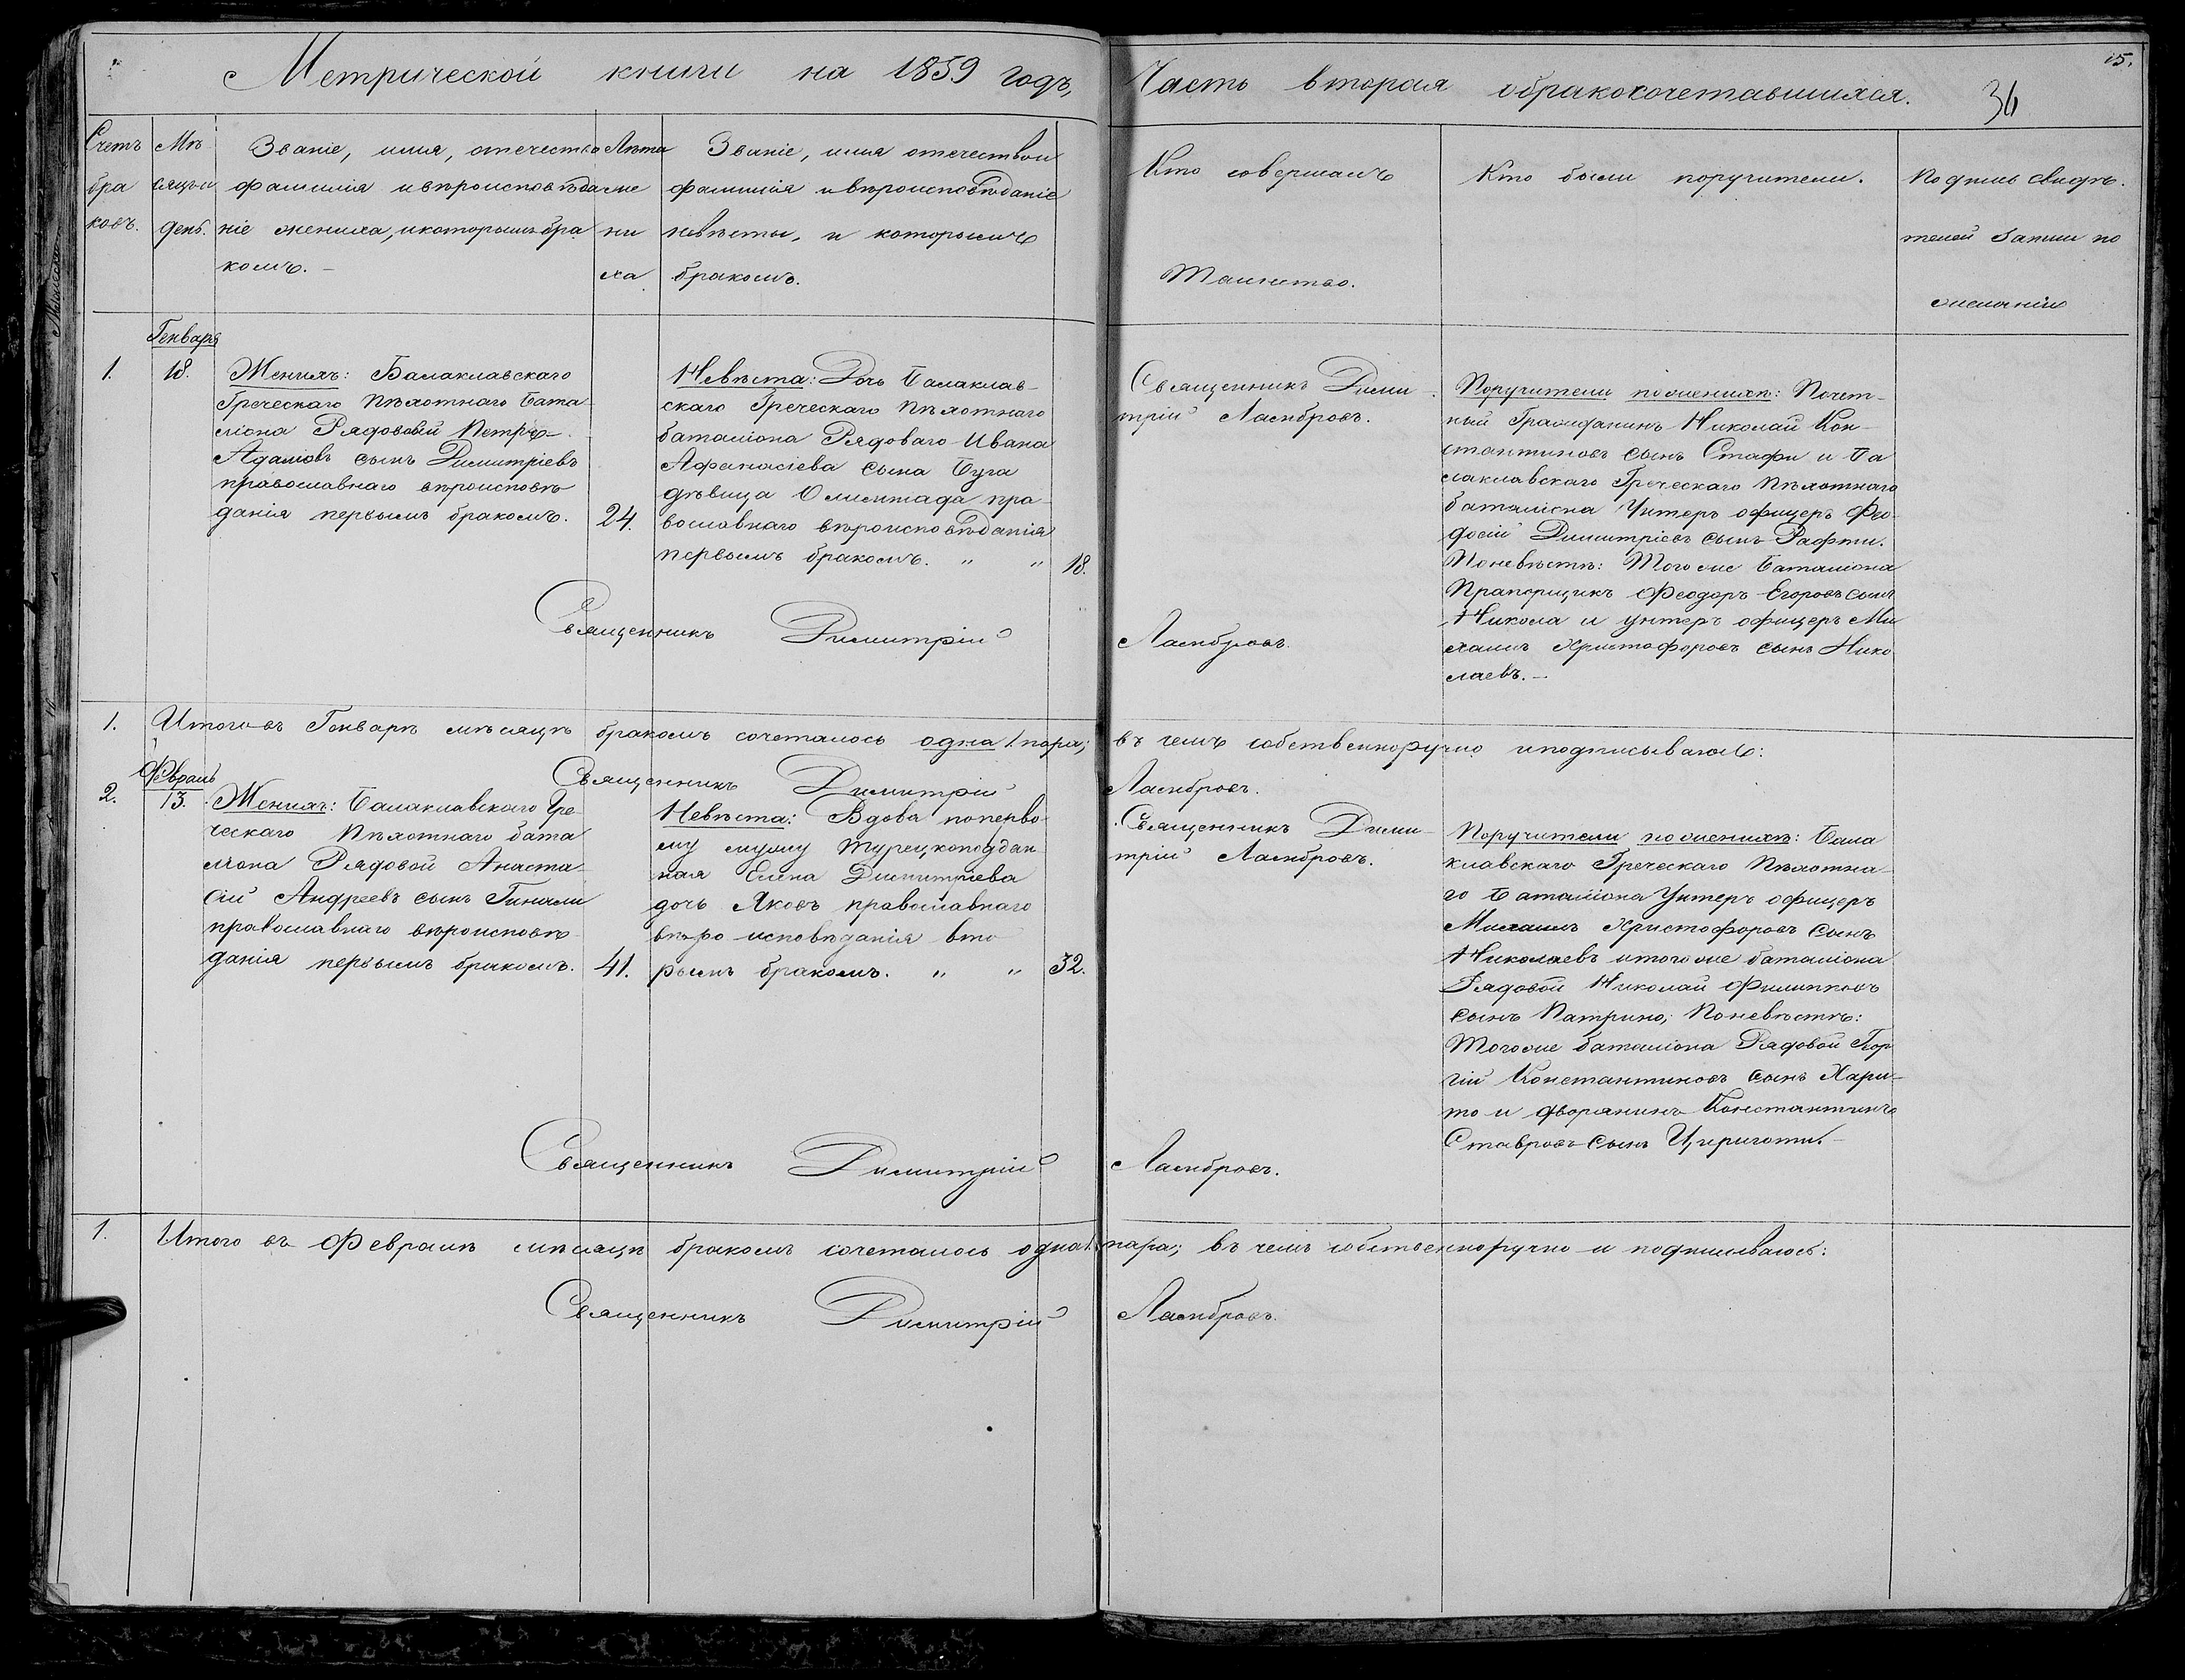 Метрической книги на 1859 годъ,
Часть вторая обракосочетавшихся.
15.
36
Счетъ браковъ.
Мѣсяцъ и день.
Званіе, имя, отечество
фамилія ивѣроисповѣда
ніе жениха, икоторымъ бра
комъ. –
Лѣта
же
ни
ха
Званіе, имя отечествои
фамилія ивѣроисповѣданіе
невѣсты, и которымъ
бракомъ.
Кто совершалъ
Таинство.
Кто были поручители.
Подпись свидѣ.
телей записи по
желанію
Генваря
1. 18.
Женихъ: Балаклавскаго
Греческаго Пѣхотнаго Бата
ліона Рядовой Петръ
Адамовъ сынъ Димитріевъ
православнаго вѣроисповѣ
данія первымъ бракомъ.
24.
Невѣста: Дочь Балаклав
скаго Греческаго Пѣхотнаго
баталіона Рядоваго Ивана
Афанасіева сына Буга
дѣвица Олимпіада пра
вославнаго вѣроисповѣданія
первымъ бракомъ. „ „
18.
Священникъ Дими
трій Ламбровъ.
Поручители пожениху: Почет
ный Гражданинъ Николай Кон
стантиновъ сынъ Стафи и Ба
лаклавскаго Греческаго Пѣхотнаго
баталіона Унтеръ офицеръ Фео
досій Димитріевъ сынъ Рафти.
Поневѣстѣ: Того же Баталіона
Прапорщикъ Феодоръ Егоровъ сынъ
Никола и унтеръ офицеръ Ми
хаилъ Христофоровъ сынъ Нико
лаевъ. –
Священникъ Димитрій Ламбровъ.
1. Итого въ Генварѣ мѣсяцѣ бракомъ сочеталось одна 1 пара; въ чемъ собственноручно иподписываюсь:
Священникъ Димитрій Ламбровъ.
Февраль
2. 13.
Женихъ: Балаклавскаго Гре
ческаго Пѣхотнаго бата
ліона Рядовой Анаста
сій Андреевъ сынъ Гинали
православнаго вѣроисповѣ
данія первымъ бракомъ.
41.
Невѣста: Вдова поперво
му мужу Турецкоподдан
ная Елена Димитріева
дочь Яковъ православнаго
вѣро исповѣданія вто
рымъ бракомъ. „ „
32.
Священникъ Дими
трій Ламбровъ.
Поручители пожениху: Бала
клавскаго Греческаго Пѣхотна
го Баталіона Унтеръ офицеръ
Михаилъ Христофоровъ сынъ
Николаевъ итого же баталіона
Рядовой Николай Филипповъ
сынъ Патрино; Поневѣстѣ:
Тогоже баталіона Рядовой Геор
гій Константиновъ сынъ Хари
то и дворянинъ Константинъ
Ставровъ сынъ Цириготи. –
Священникъ Димитрій Ламбровъ.
1. Итого въ Февралѣ мѣсяцѣ бракомъ сочеталось одна 1. пара; въ чемъ собственноручно и подписываюсь:
Священникъ Димитрій Ламбровъ.